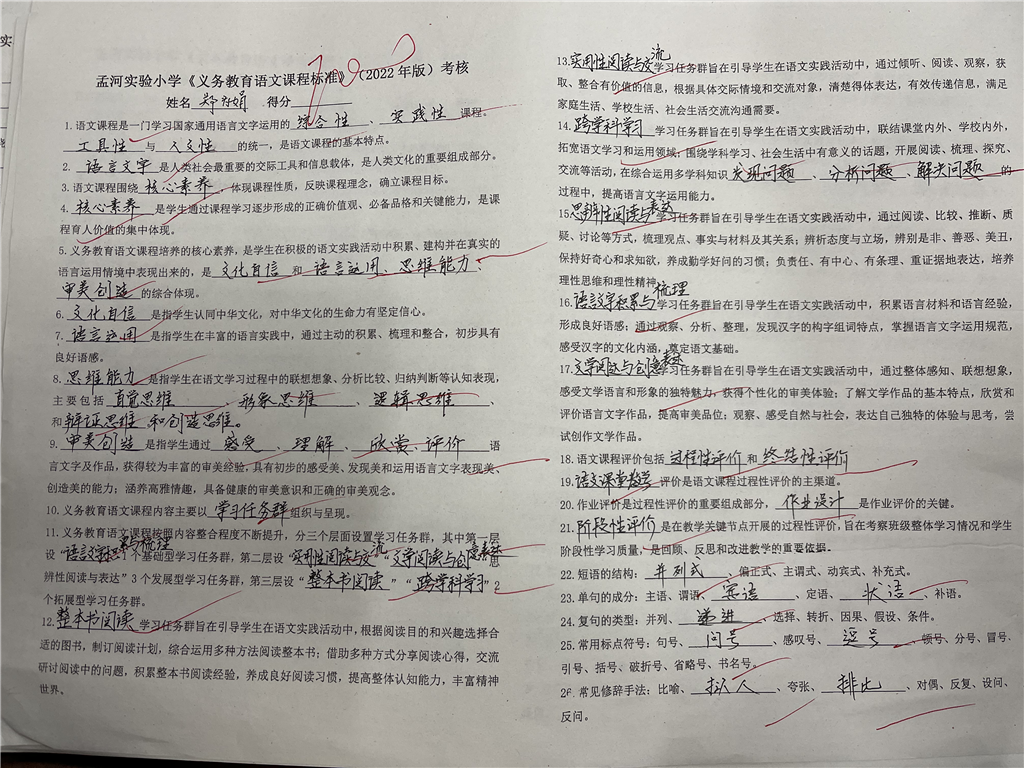 孟河实验小学《义务教育语文课程标准》（2022年版）考核
姓名 郑娟 得分
1.语文课程是一门学习国家通用语言文字运用的 综合性 、 实践性 课程。
工具性 与 人文性 的统一，是语文课程的基本特点。
2. 语言文字 是人类社会最重要的交际工具和信息载体，是人类文化的重要组成部分。
3.语文课程围绕 核心素养 ，体现课程性质，反映课程理念，确立课程目标。
4. 核心素养 是学生通过课程学习逐步形成的正确价值观、必备品格和关键能力，是课
程育人价值的集中体现。
5.义务教育语文课程培养的核心素养，是学生在积极的语文实践活动中积累、建构并在真实的
语言运用情境中表现出来的，是 文化自信 和 语言运用 、 思维能力 、
审美创造 的综合体现。
6. 文化自信 是指学生认同中华文化，对中华文化的生命力有坚定信心。
7. 语言运用 是指学生在丰富的语言实践中，通过主动的积累、梳理和整合，初步具有
良好语感。
8. 思维能力 是指学生在语文学习过程中的联想想象、分析比较、归纳判断等认知表现，
主要包括 直觉思维 、 形象思维 、 逻辑思维 、
和 辩证思维 和创造思维。
9. 审美创造 是指学生通过 感受 、 理解 、 欣赏 、 评价 语
言文字及作品，获得较为丰富的审美经验，具有初步的感受美、发现美和运用语言文字表现美、
创造美的能力；涵养高雅情趣，具备健康的审美意识和正确的审美观念。
10.义务教育语文课程内容主要以 学习任务群 组织与呈现。
11.义务教育语文课程按照内容整合程度不断提升，分三个层面设置学习任务群，其中第一层
设“语言文字积累与梳理”1个基础型学习任务群，第二层设“实用性阅读与交流”“文学阅读与创意表达”“思
辨性阅读与表达”3个发展型学习任务群，第三层设“ 整本书阅读 ”“ 跨学科学习 ”2
个拓展型学习任务群。
12. 整本书阅读 学习任务群旨在引导学生在语文实践活动中，根据阅读目的和兴趣选择合
适的图书，制订阅读计划，综合运用多种方法阅读整本书；借助多种方式分享阅读心得，交流
研讨阅读中的问题，积累整本书阅读经验，养成良好阅读习惯，提高整体认知能力，丰富精神
世界。
13. 实用性阅读与交流 学习任务群旨在引导学生在语文实践活动中，通过倾听、阅读、观察，获
取、整合有价值的信息，根据具体交际情境和交流对象，清楚得体表达，有效传递信息，满足
家庭生活、学校生活、社会生活交流沟通需要。
14. 跨学科学习 学习任务群旨在引导学生在语文实践活动中，联结课堂内外、学校内外，
拓宽语文学习和运用领域；围绕学科学习、社会生活中有意义的话题，开展阅读、梳理、探究、
交流等活动，在综合运用多学科知识 发现问题 、 分析问题 、 解决问题 的
过程中，提高语言文字运用能力。
15. 思辨性阅读与表达 学习任务群旨在引导学生在语文实践活动中，通过阅读、比较、推断、质
疑、讨论等方式，梳理观点、事实与材料及其关系；辨析态度与立场，辨别是非、善恶、美丑，
保持好奇心和求知欲，养成勤学好问的习惯；负责任、有中心、有条理、重证据地表达，培养
理性思维和理性精神。
16. 语言文字积累与梳理 学习任务群旨在引导学生在语文实践活动中，积累语言材料和语言经验，
形成良好语感；通过观察、分析、整理，发现汉字的构字组词特点，掌握语言文字运用规范，
感受汉字的文化内涵，奠定语文基础。
17. 文学阅读与创意表达 学习任务群旨在引导学生在语文实践活动中，通过整体感知、联想想象，
感受文学语言和形象的独特魅力，获得个性化的审美体验；了解文学作品的基本特点，欣赏和
评价语言文字作品，提高审美品位；观察、感受自然与社会，表达自己独特的体验与思考，尝
试创作文学作品。
18.语文课程评价包括 过程性评价 和 终结性评价
19. 语文课堂教学 评价是语文课程过程性评价的主渠道。
20.作业评价是过程性评价的重要组成部分， 作业设计 是作业评价的关键。
21. 阶段性评价 是在教学关键节点开展的过程性评价，旨在考察班级整体学习情况和学生
阶段性学习质量，是回顾、反思和改进教学的重要依据。
22.短语的结构： 并列式 、偏正式、主谓式、动宾式、补充式。
23.单句的成分：主语、谓语、 宾语 、定语、 状语 、补语。
24.复句的类型：并列、 递进 、选择、转折、因果、假设、条件。
25.常用标点符号：句号、 问号 、感叹号、 逗号 、顿号、分号、冒号、
引号、括号、破折号、省略号、书名号。
26.常见修辞手法：比喻、 拟人 、夸张、 排比 、对偶、反复、设问、
反问。